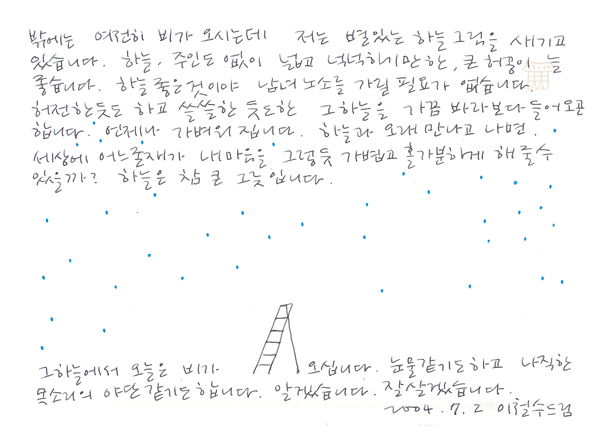 밖에는 여전히 비가 오시는데 저는 별있는 하늘 그림을 새기고
있습니다. 하늘, 주인도 없이 넓고 넉넉하기만 한, 큰 허공이 늘
좋습니다. 하늘 좋은것이야 남녀노소를 가릴 필요가 없습니다.
허전한듯도 하고 쓸쓸한 듯도한 그하늘을 가끔 바라보다 들어오곤
합니다. 언제나 가벼워집니다. 하늘과 오래 만나고 나면.
세상에 어느줄재가 내마음을 그렇듯 가볍고 홀가분하게 해 줄수
있을까? 하늘은 참 큰 그늘입니다.
그하늘에서 오늘은 비가 오십니다. 눈물같기도하고 나직한
목소리의 야단같기도합니다. 알겠습니다. 잘살겠습니다.
2004. 7. 2 이철수드림